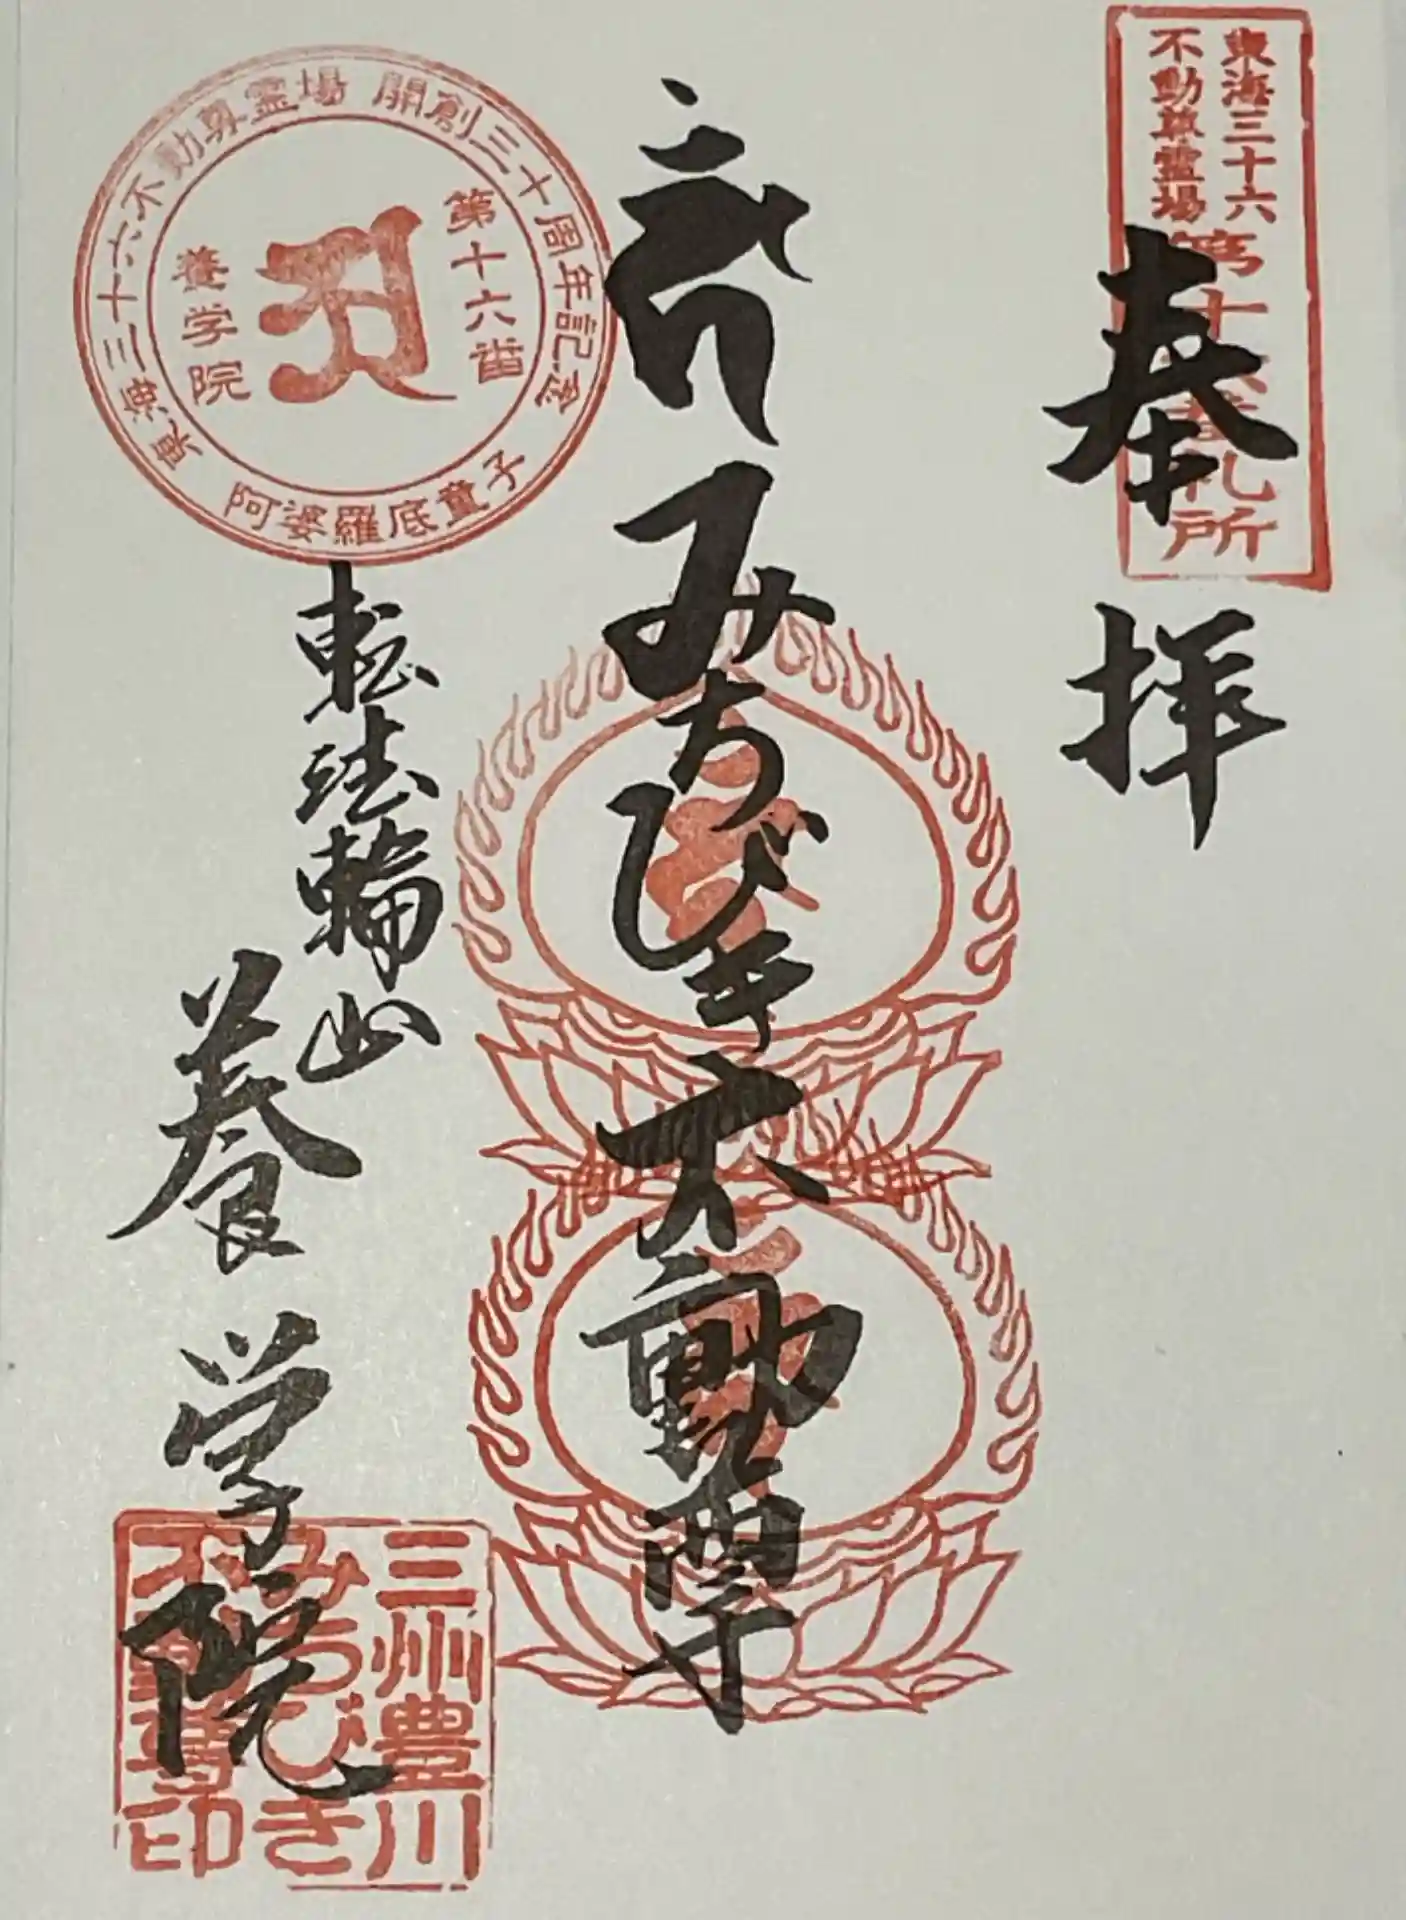 東海三十六
不動尊霊場
第十六番札所
奉拝
みちびき不動尊
東海三十六不動尊霊場 開創三十周年記念
第十六番
養学院
阿婆羅底童子
転法輪山
養学院
三州豊川
みちびき
不動尊印